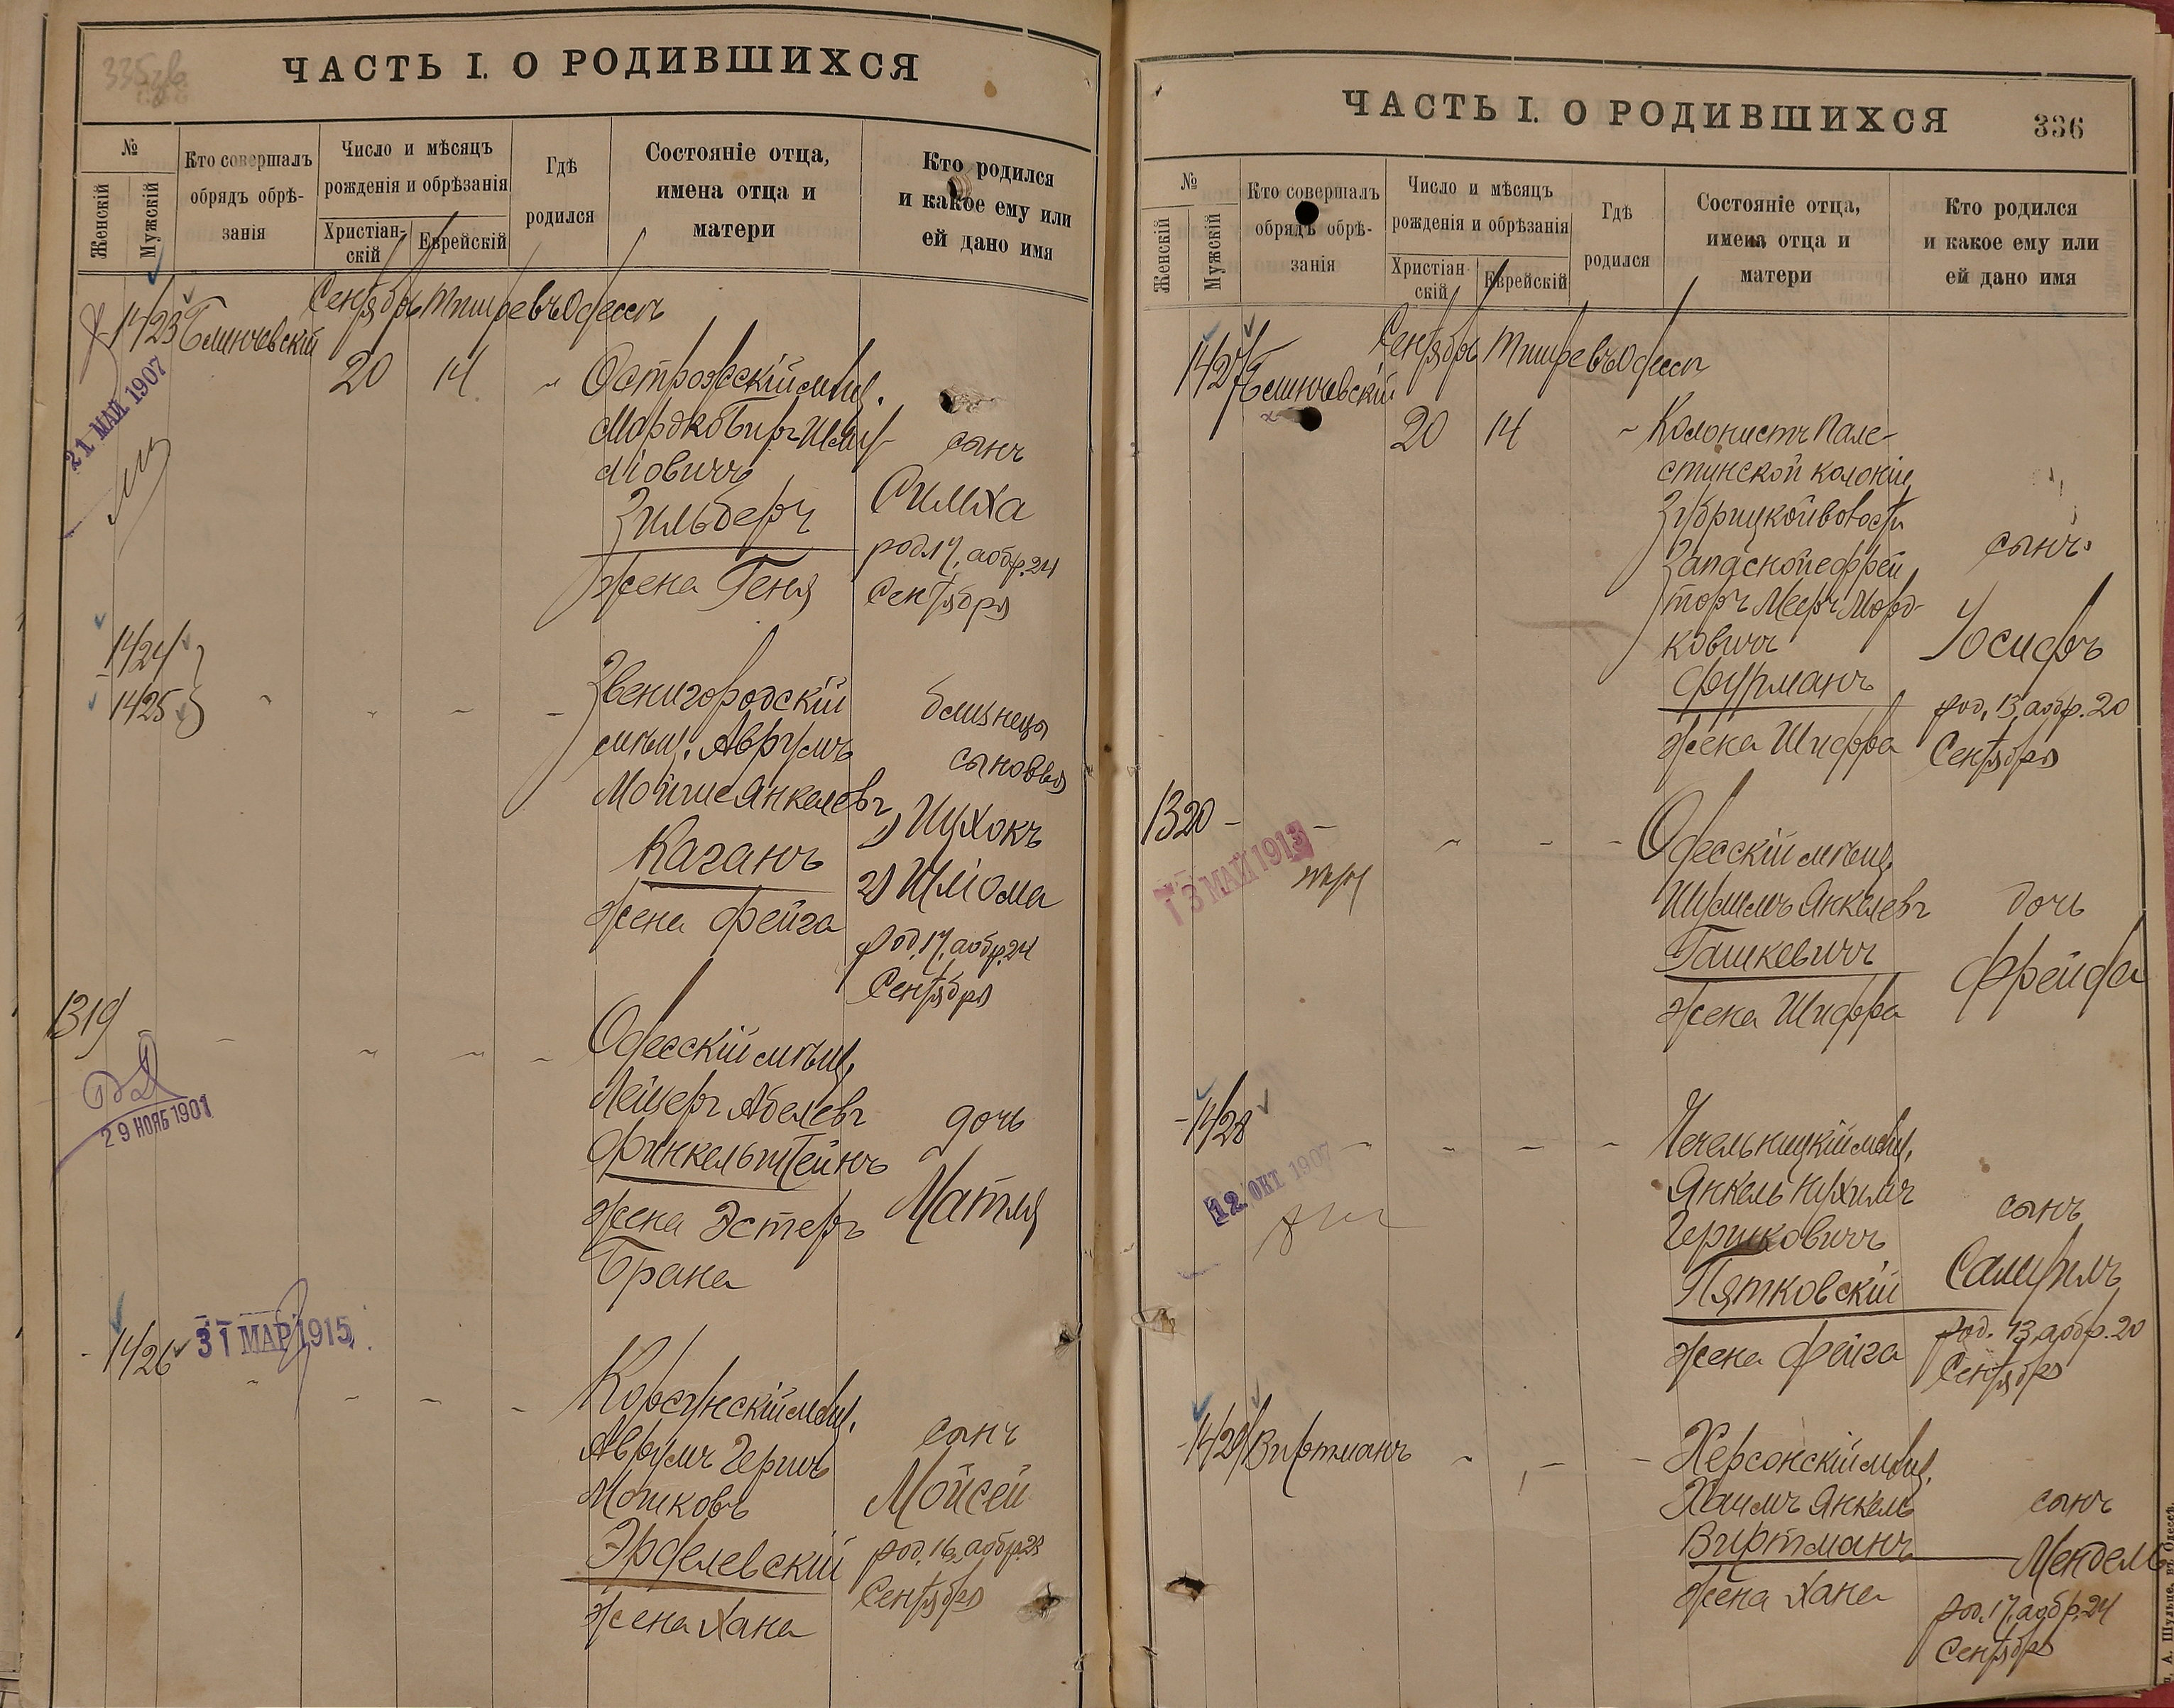 ЧАСТЬ I. О РОДИВШИХСЯ
№
Женскій
Мужскій
Кто совершалъ
обрядъ обрѣ-
занія
Число и мѣсяцъ
рожденія и обрѣзанія
Христіан-
скій
Еврейскій
Гдѣ
родился
Состояніе отца,
имена отца и
матери
Кто родился
и какое ему или
ей дано имя
1423 Блинчевскій
Сентябрь Тишре въ Одессѣ
20 14 "
21 МАЙ 1907
Острожскій мѣщ.
Мордко Беръ Шму-
ліовичъ
Зильберъ
жена Геня
сынъ
Симха
род. 17, а обр. 24
Сентября
1424
1425
Звенигородскій
мѣщ. Аврумъ
Мойше Янкелевъ
Каганъ
жена Фейга
близнецы
сыновья
1) Ицхокъ
2) Шліома
род. 17, а обр. 24
Сентября
1319
29 НОЯБ 1901
Одесскій мѣщ.
Лейзеръ Абелевъ
Финкельштейнъ
жена Эстеръ
Брана
дочь
Матля
1426
31 МАР 1915
Корсунскій мѣщ.
Аврумъ Гершъ
Мошковъ
Эрделевскій
жена Хана
сынъ
Мойсей
род. 16, а обр. 23
Сентября
ЧАСТЬ I. О РОДИВШИХСЯ
336
№
Женскій
Мужскій
Кто совершалъ
обрядъ обрѣ-
занія
Число и мѣсяцъ
рожденія и обрѣзанія
Христіан-
скій
Еврейскій
Гдѣ
родился
Состояніе отца,
имена отца и
матери
Кто родился
и какое ему или
ей дано имя
1427 Блинчевскій
Сентябрь Тишре въ Одессѣ
20 14 "
Колонистъ Пале-
стинской колоніи
волости
Запасной ефрей
торъ Мееръ Морд-
ковичъ
Фурманъ
жена Шифра
сынъ
Іосифъ
род. 13, а обр. 20
Сентября
1320
13 МАЙ 1913
Одесскій мѣщ.
Шулимъ Янкелевъ
Гашкевичъ
жена Шифра
дочь
Фрейда
1428
12 ОКТ 1907
Чечельницкій мѣщ.
Янкель Нухимъ
Гершковичъ
Пятковскій
жена Фейга
сынъ
Самуилъ
род. 13, а обр. 20
Сентября
1429 Виртманъ
Херсонскій мѣщ.
Хаимъ Янкель
Виртманъ
жена Хана
сынъ
Мендель
род. 17, а обр. 24
Сентября
А. Шульце, въ Одессѣ.